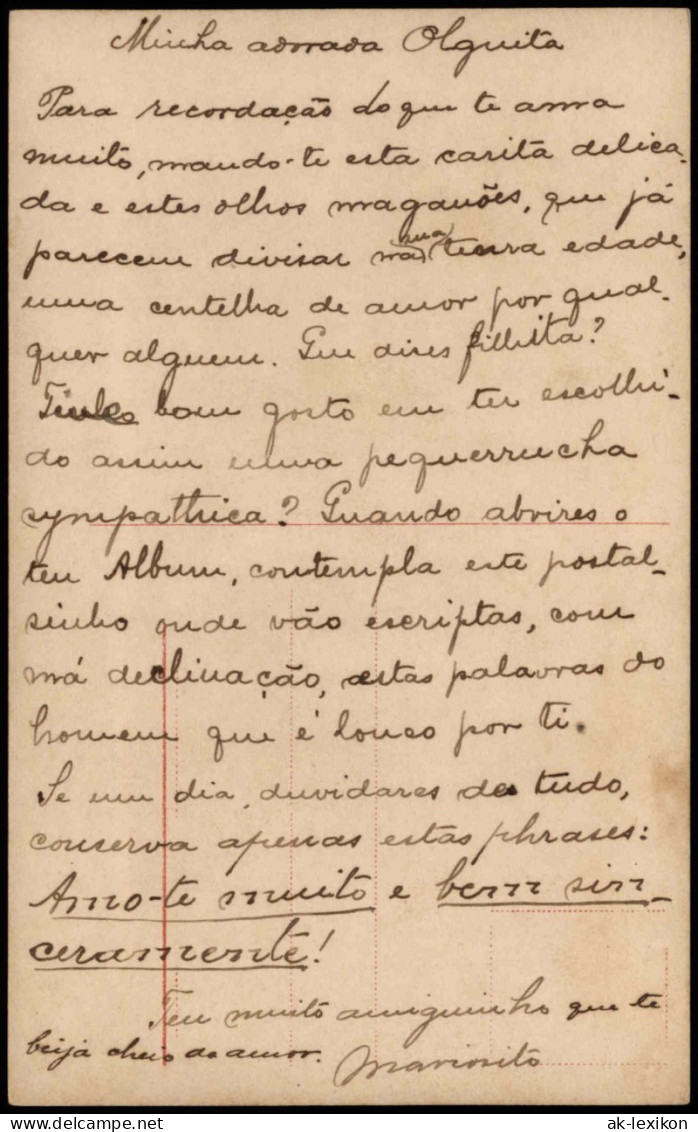 Minha adorada Olguita
Para recordação do que te ama
muito, mando-te esta carita delica-
da e estes olhos maganões, que já
parecem divisar na sua tenra edade,
uma centelha de amor por qual-
quer alguem. Que dizes filhita?
Tenho bom gosto em ter escolhi-
do assim uma pequerrucha
sympathica? Quando abrires o
teu Album, contempla este postal-
sinho onde vão escriptas, com
má declinação, estas palavras do
homem que é louco por ti.
Se um dia, duvidares de tudo,
conserva apenas estas phrases:
Amo-te muito e bem sin-
ceramente!
Teu muito amiguinho que te
beija cheio de amor. Mariosito
ak-lexikon